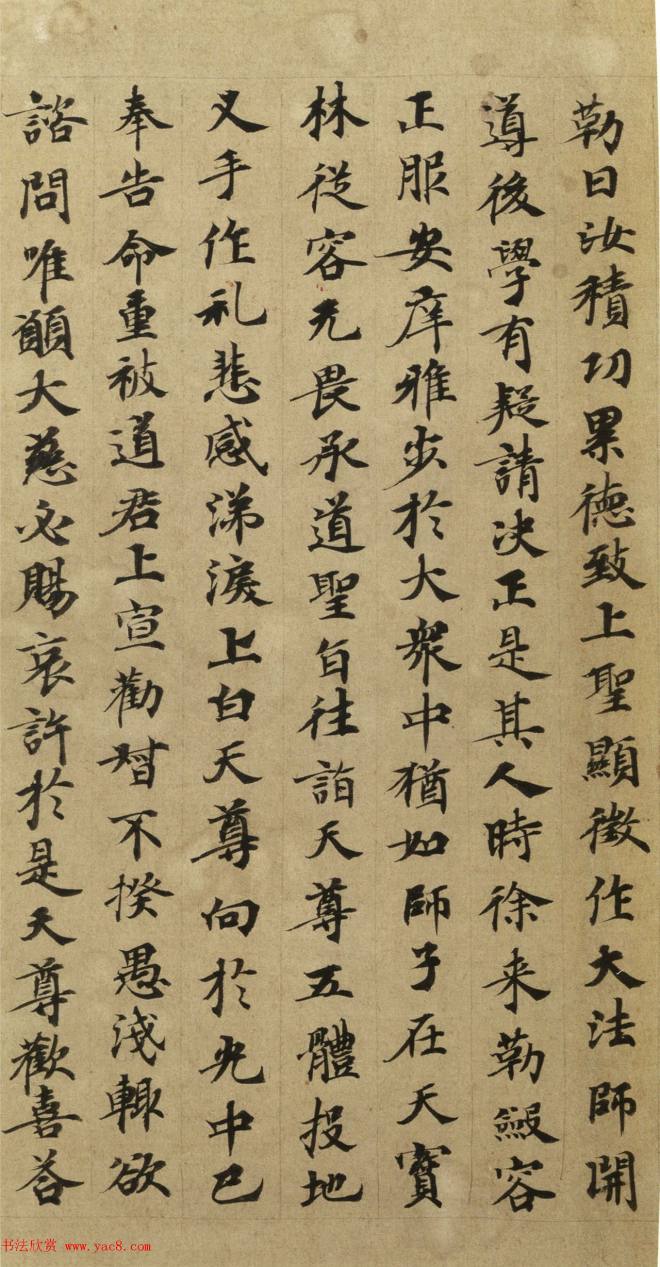 勒曰汝積功累德致上聖顯徵作大法師開
導後學有疑請决正是其人時徐来勒斂容
正服安庠雅步於大衆中猶如師子在天寶
林從容无畏承道聖旨往詣天尊五體投地
叉手作礼悲感涕淚上白天尊向於光中已
奉告命重被道君上宣勸督不揆愚淺輙欲
諮問唯願大慈必賜哀許於是天尊歡喜荅
书法欣赏 www.yac8.com